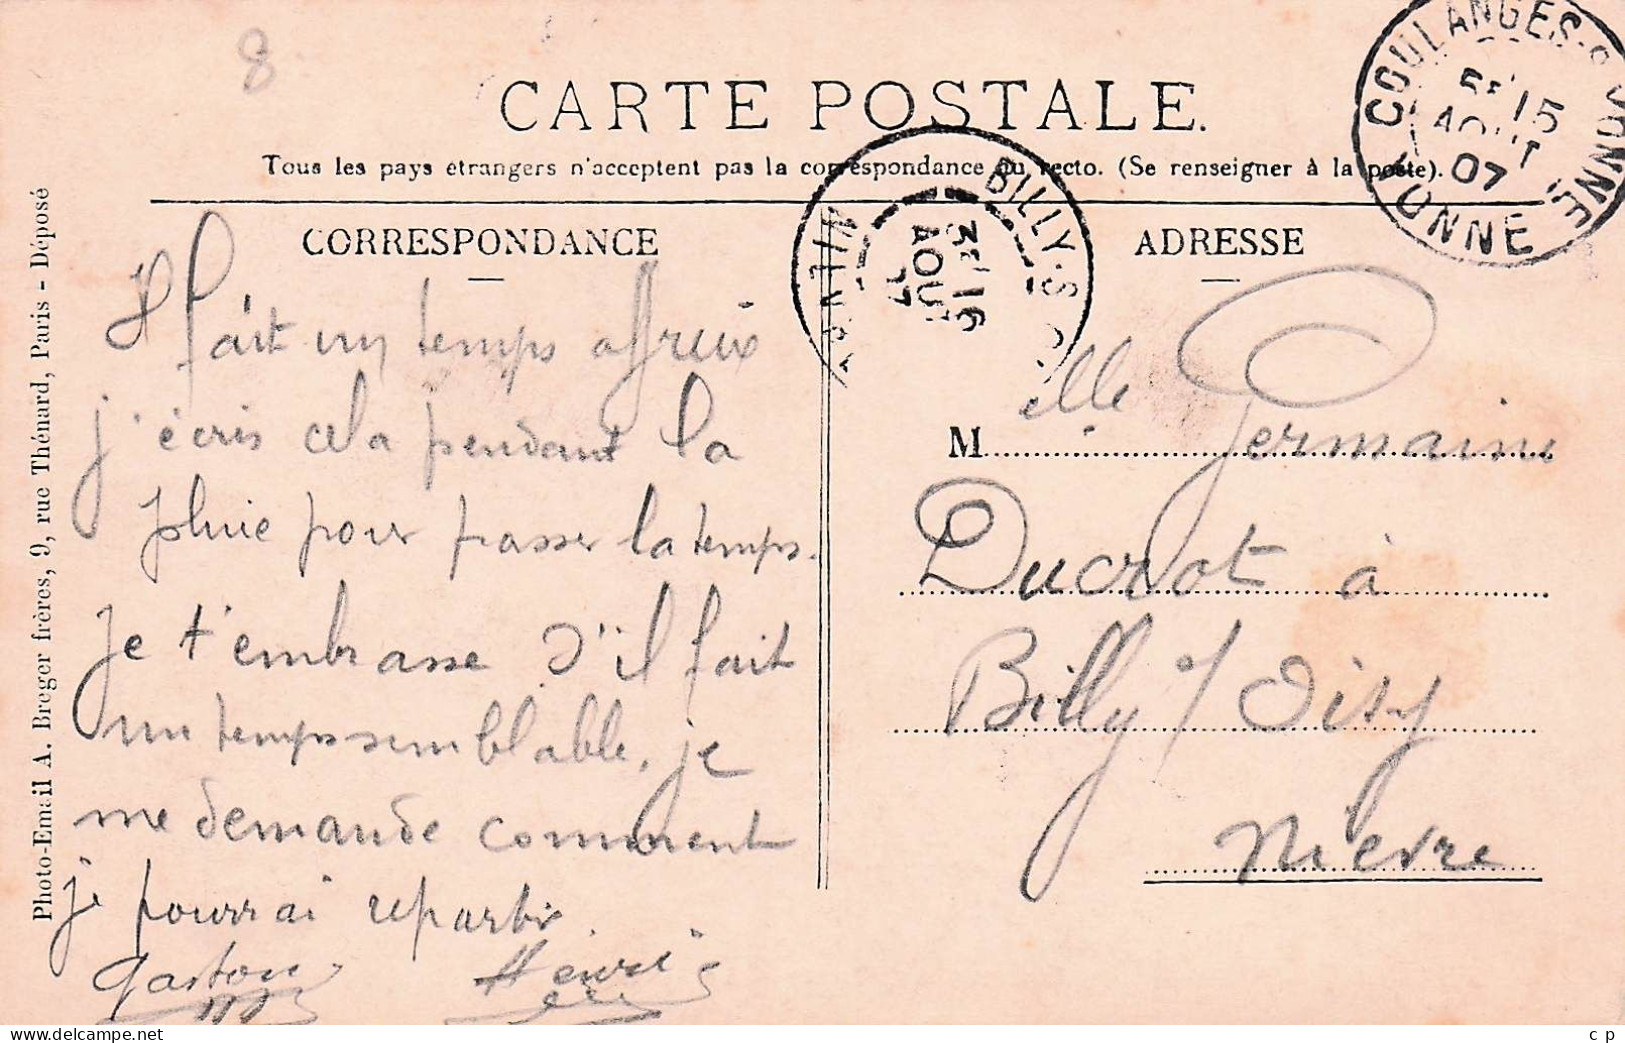 8
CARTE POSTALE.
Tous les pays étrangers n'acceptent pas la correspondance au recto. (Se renseigner à la poste).
COULANGES-S-YONNE
15
AOUT
07
YONNE
BILLY-S-O
3E 16
AOUT
07
NIÈVRE
CORRESPONDANCE
Il fait un temps affreux
j'écris cela pendant la
pluie pour passer la temps.
Je t'embrasse S'il fait
un temps semblable, je
me demande comment
je pourrai repartir
Gaston Henri
ADRESSE
M elle Germaine
Ducrot à
Billy s/ Oisy
Nièvre
Photo-Email A. Breger frères, 9, rue Thénard, Paris - Déposé
www.delcampe.net
c p